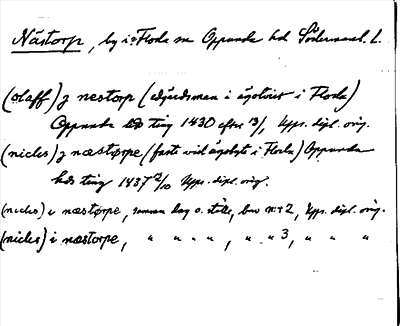 Nästorp, by i Floda sn Oppunda hd Södermanl. L.
(olaff) j nestorp (edgärdsman i ägotvist i Floda)
Oppunda hds ting 1430 efter 13/1, Upps. dipl. orig.
(niclis) j næstørpe (faste vid ägobyte i Floda) Oppunda
hds ting 1437 2/10 Upps. dipl. orig.
(niclis) i næstørpe, samma dag o. ställe, brev nr 2, Upps. dipl. orig.
(niclis) i næstorpe, " " " ", " " 3, " " "